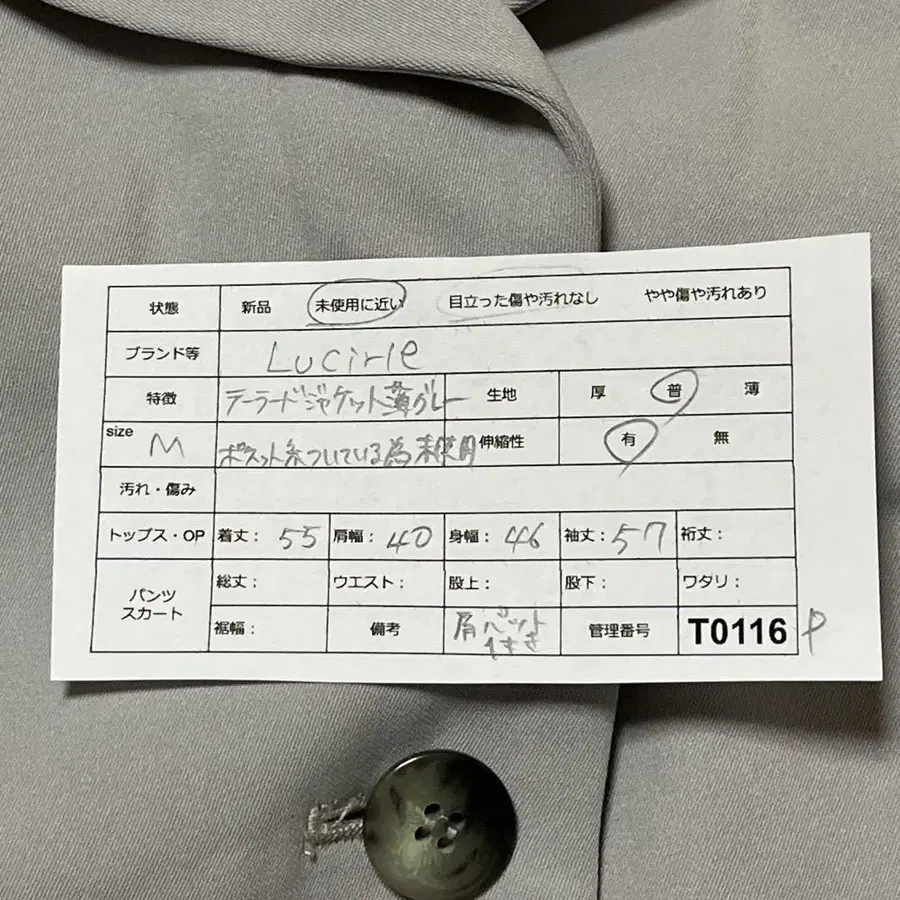 状態 新品 未使用に近い 目立った傷や汚れなし やや傷や汚れあり
ブランド等 Lucirle
特徴 テーラードジャケット薄グレー 生地 厚 普 薄
size M ポケット糸ついている為未使用 伸縮性 有 無
汚れ・傷み
トップス・OP 着丈: 55 肩幅: 40 身幅: 46 袖丈: 57 裄丈:
パンツ スカート 総丈: ウエスト: 股上: 股下: ワタリ:
裾幅: 備考 肩パット付き 管理番号 T0116 P